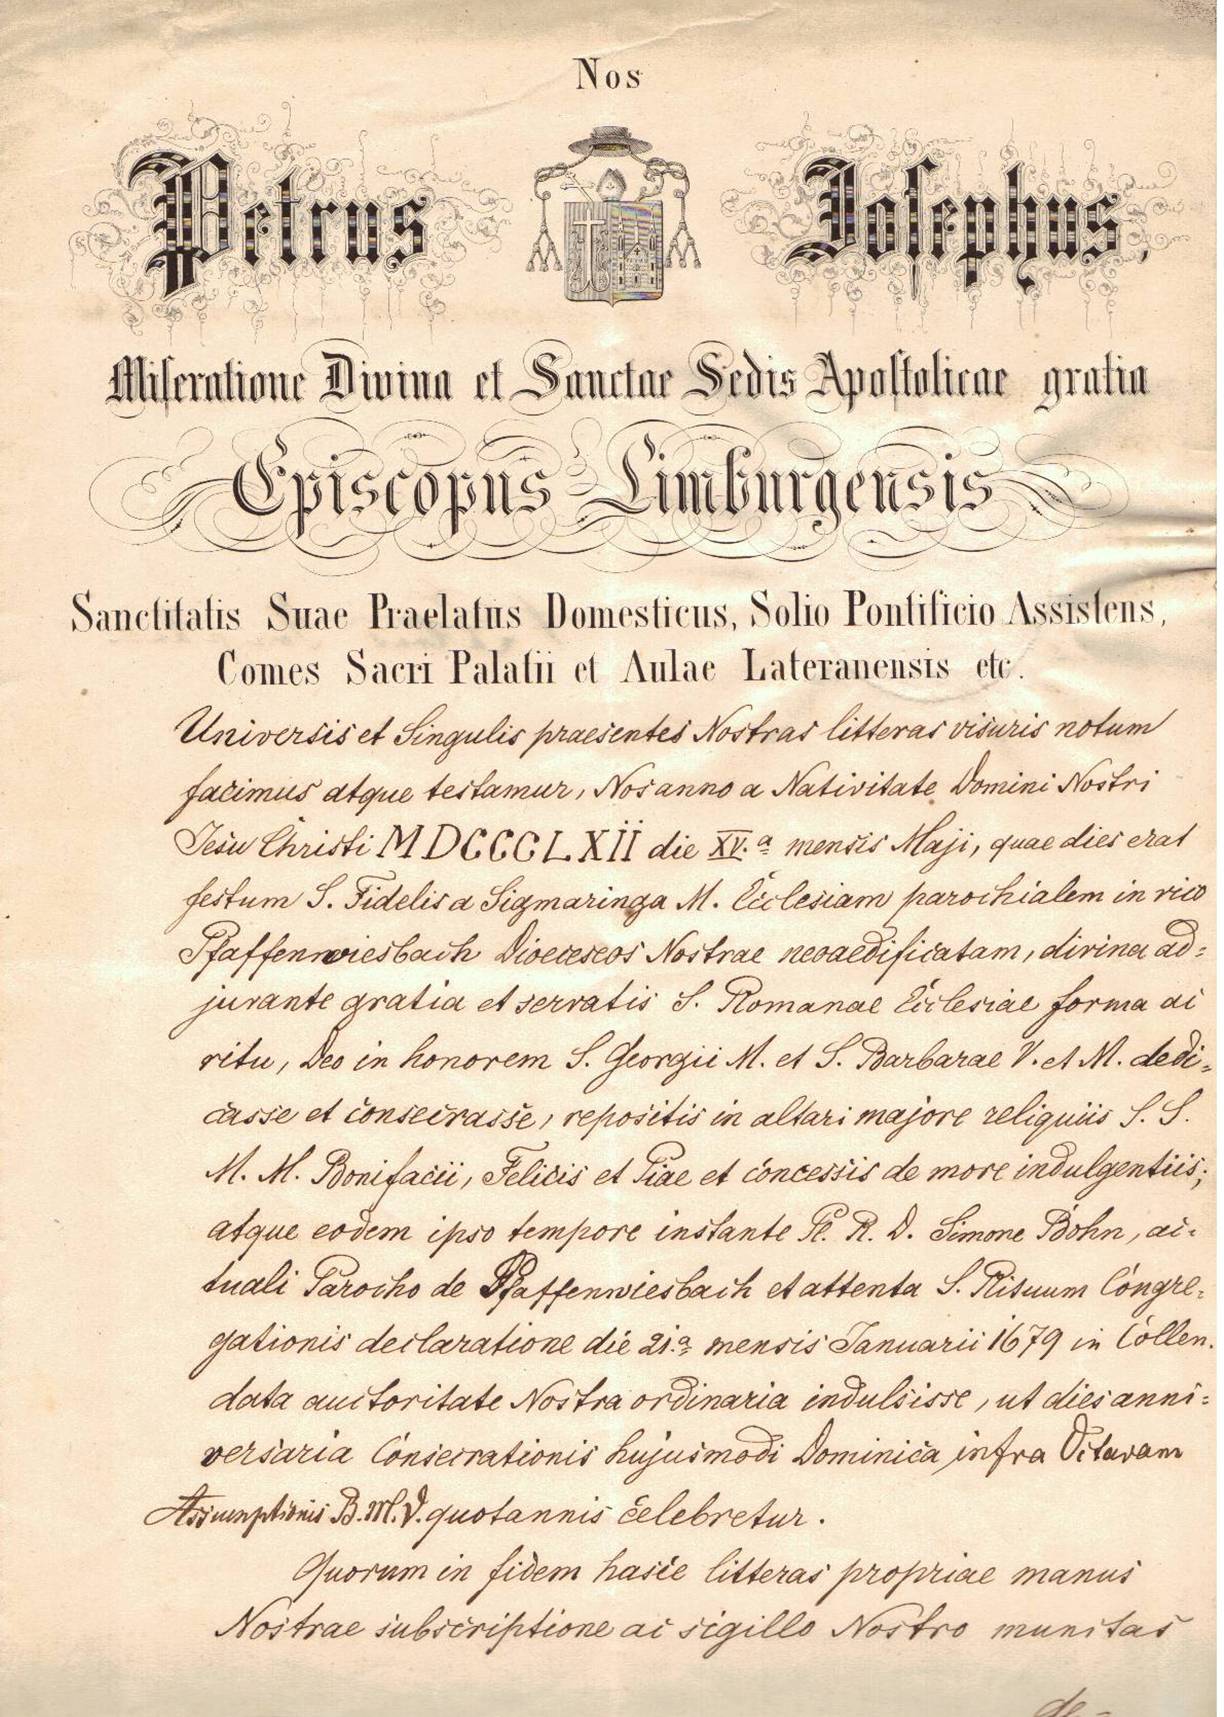 Nos
Petrus Iosephus,
Miseratione Divina et Sanctae Sedis Apostolicae gratia
Episcopus Limburgensis
Sanctitatis Suae Praelatus Domesticus, Solio Pontificio Assistens,
Comes Sacri Palatii et Aulae Lateranensis etc.
Universis et Singulis praesentes Nostras litteras visuris notum
facimus atque testamur, Nos anno a Nativitate Domini Nostri
Jesu Christi MDCCCCLXII die XV.ª mensis Maji, quae dies erat
festum S. Fidelis a Sigmaringa M. Ecclesiam parochialem in vico
Pfaffenwiesbach Dioeceseos Nostrae neoaedificatam, divina ad=
juvante gratia et servatis S. Romanae Ecclesiae forma ac
ritu, Deo in honorem S. Georgii M. et S. Barbarae V. et M. dedi=
casse et consecrasse, repositis in altari majore reliquiis S. S.
M. M. Bonifacii, Felicis et Piae et concessis de more indulgentiis;
atque eodem ipso tempore instante Pl. R. D. Simone Bohn, ac=
tuali Parocho de Pfaffenwiesbach et attenta S. Rituum Congre=
gationis declaratione die 21.ª mensis Januarii 1679 in Collen.
data auctoritate Nostra ordinaria indulsisse, ut dies anni=
versaria Consecrationis hujusmodi Dominica infra Octavam
Assumptionis B. M. V. quotannis celebretur.
Quorum in fidem hasce litteras propriae manus
Nostrae subscriptione ac sigillo Nostro munitas
de-